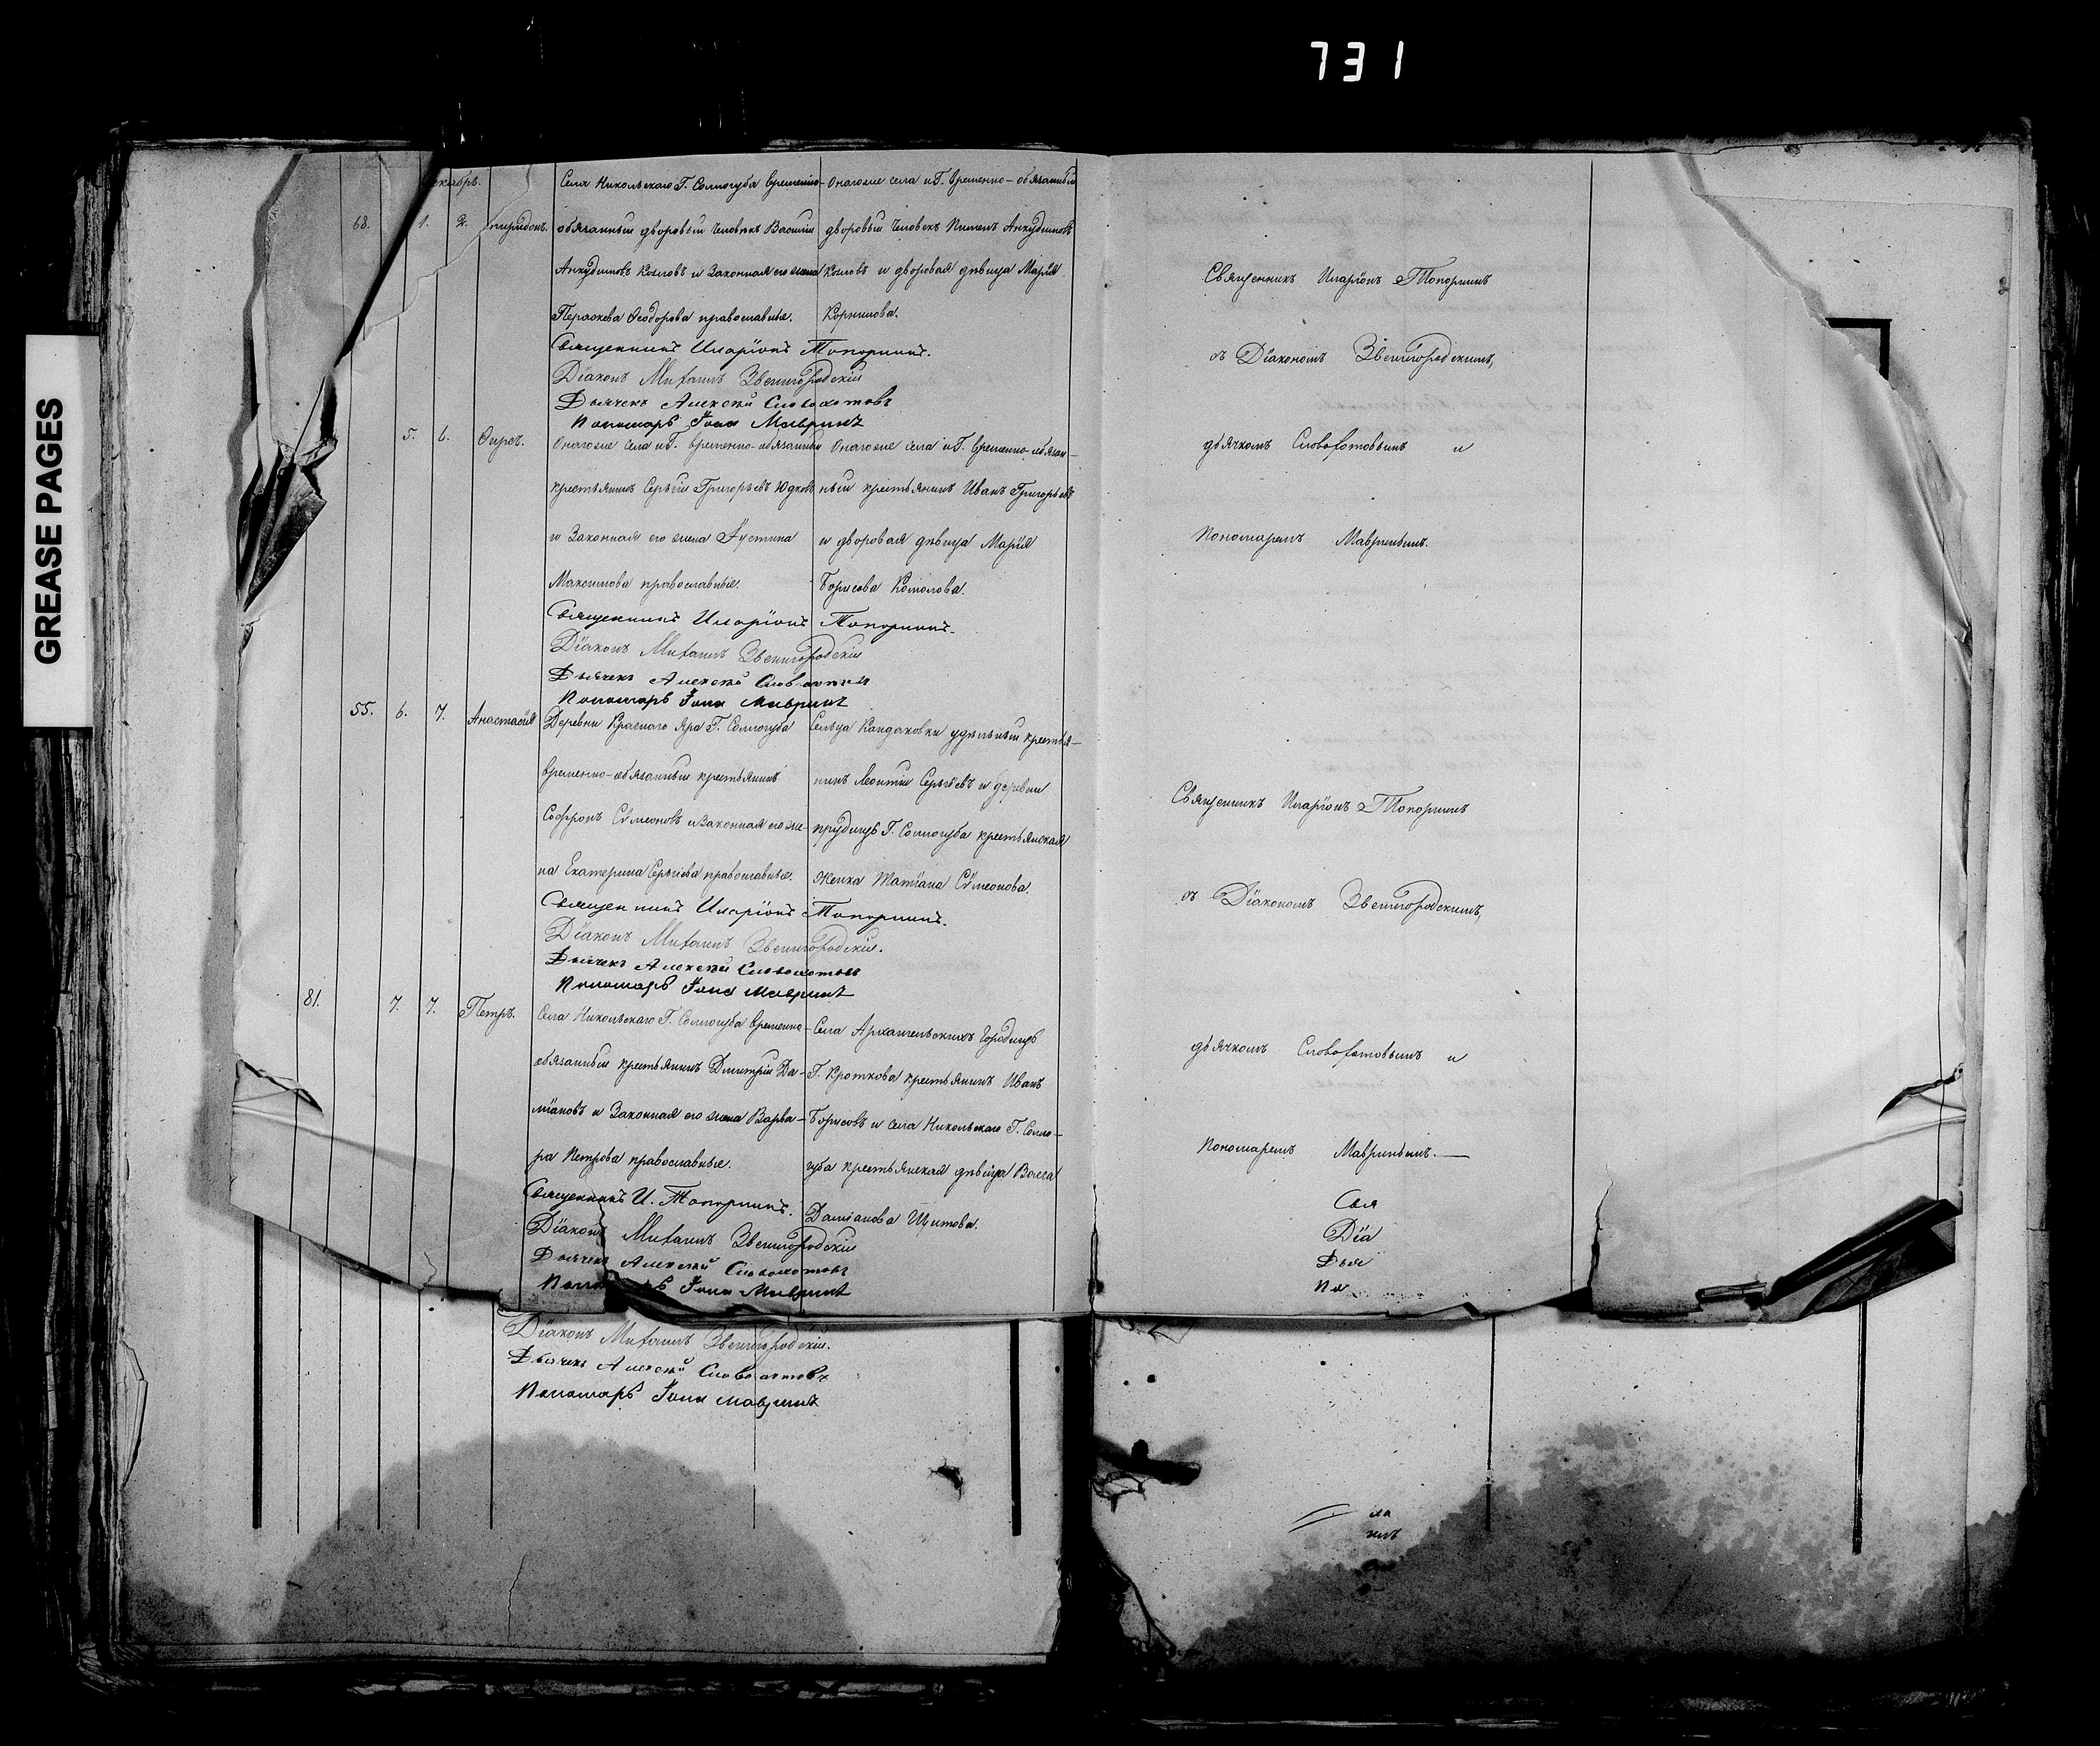 731
GREASE PAGES
екабрь.
Села Никольскаго Г. Соллогуба временно-
Онагоже села и Г. временно-обязанный
68. 1. 2. пиридонъ.
обязанный дворовый человѣкъ Василій
дворовый человѣкъ Пименъ Анкудиновъ
Анкудиновъ Козловъ и законная его жена
Козловъ и дворовая дѣвица Марія
Параскева Ѳеодорова православные.
Корнилова.
Священникъ Иларіонъ Топорнинъ.
Діаконъ Михаилъ Звенигородскій
Дьячекъ Алексѣй Словохотовъ
Пономарь Іона Мавринъ
5. 6. Ѳирсъ.
Онагоже села и Г. временно-обязанный
Онагоже села и Г. временно-обязан-
крестьянинъ Сергѣй Григорьевъ Юдковъ
ный крестьянинъ Иванъ Григорьевъ
и законная его жена Іустина
и дворовая дѣвица Марія
Максимова православные.
Борисова Комолова.
Священникъ Иларіонъ Топорнинъ.
Діаконъ Михаилъ Звенигородскій
Дьячекъ Алексѣй Словохотовъ
Пономарь Іона Мавринъ
55. 6. 7. Анастасія
Деревни Краснаго Яра Г. Соллогуба
Сельца Кандаковки удѣльный крестья-
временно-обязанный крестьянинъ
нинъ Леонтій Сергѣевъ и деревни
Софронъ Сѵмеоновъ и законная его же-
прудищъ Г. Соллогуба крестьянская
на Екатерина Сергѣева православные.
женка Татіана Сѵмеонова.
Священникъ Иларіонъ Топорнинъ.
Діаконъ Михаилъ Звенигородскій.
Дьячекъ Алексѣй Словохотовъ
Пономарь Іона Мавринъ
81. 7. 7. Петръ.
Села Никольскаго Г. Соллогуба временно-
Села Архангельскихъ Городищъ
обязанный крестьянинъ Дмитрій Да-
Г. Кроткова крестьянинъ Иванъ
міановъ и законная его жена Варва-
Борисовъ и села Никольскаго Г. Солло-
ра Петрова православные.
губа крестьянская дѣвица Васса
Даміанова Щитова.
Священникъ И. Топорнинъ.
Діаконъ Михаилъ Звенигородскій
Дьячекъ Алексѣй Словохотовъ
Іона Мавринъ
Діаконъ Михаилъ Звенигородскій.
Дьячекъ Алексѣй Словохотовъ
Пономарь Іона Мавринъ
Священникъ Иларіонъ Топорнинъ
съ Діакономъ Звенигородскимъ,
дьячкомъ Словохотовымъ и
Пономаремъ Мавринымъ.
Священникъ Иларіонъ Топорнинъ
съ Діакономъ Звенигородскимъ,
дьячкомъ Словохотовымъ и
Пономаремъ Мавринымъ.
Свя
Діа
Дья
По